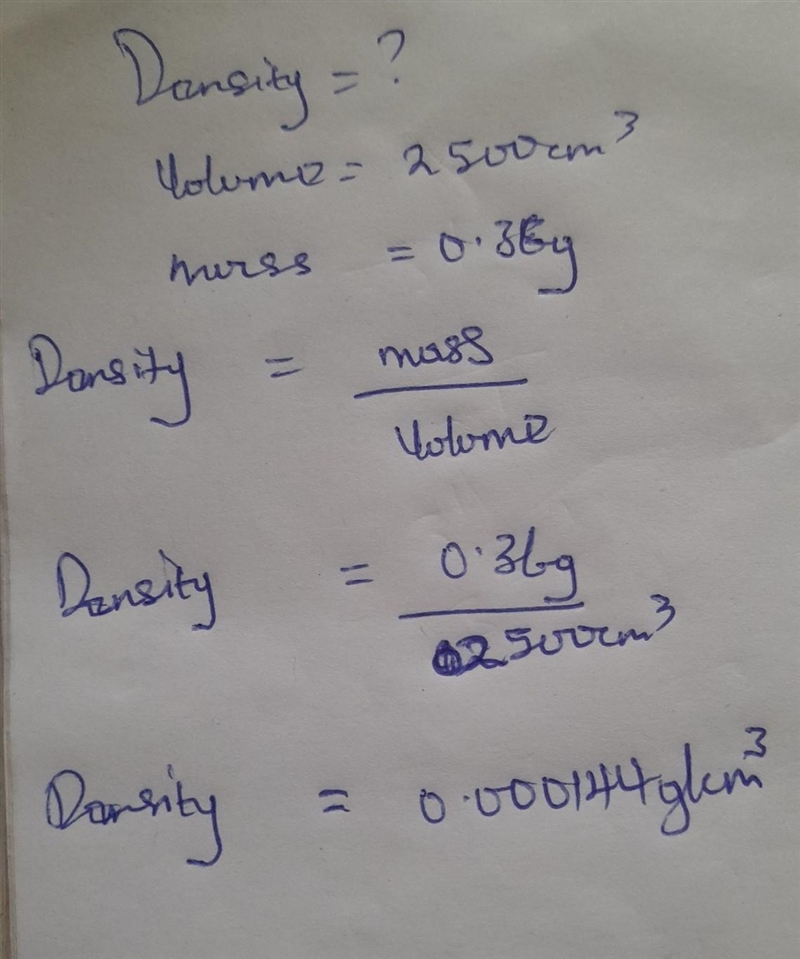 Density = ?
Volume = 2500cm³
mass = 0.36g
Density = mass
Volume
Density = 0.36g
2500cm³
Density = 0.000144g/cm³